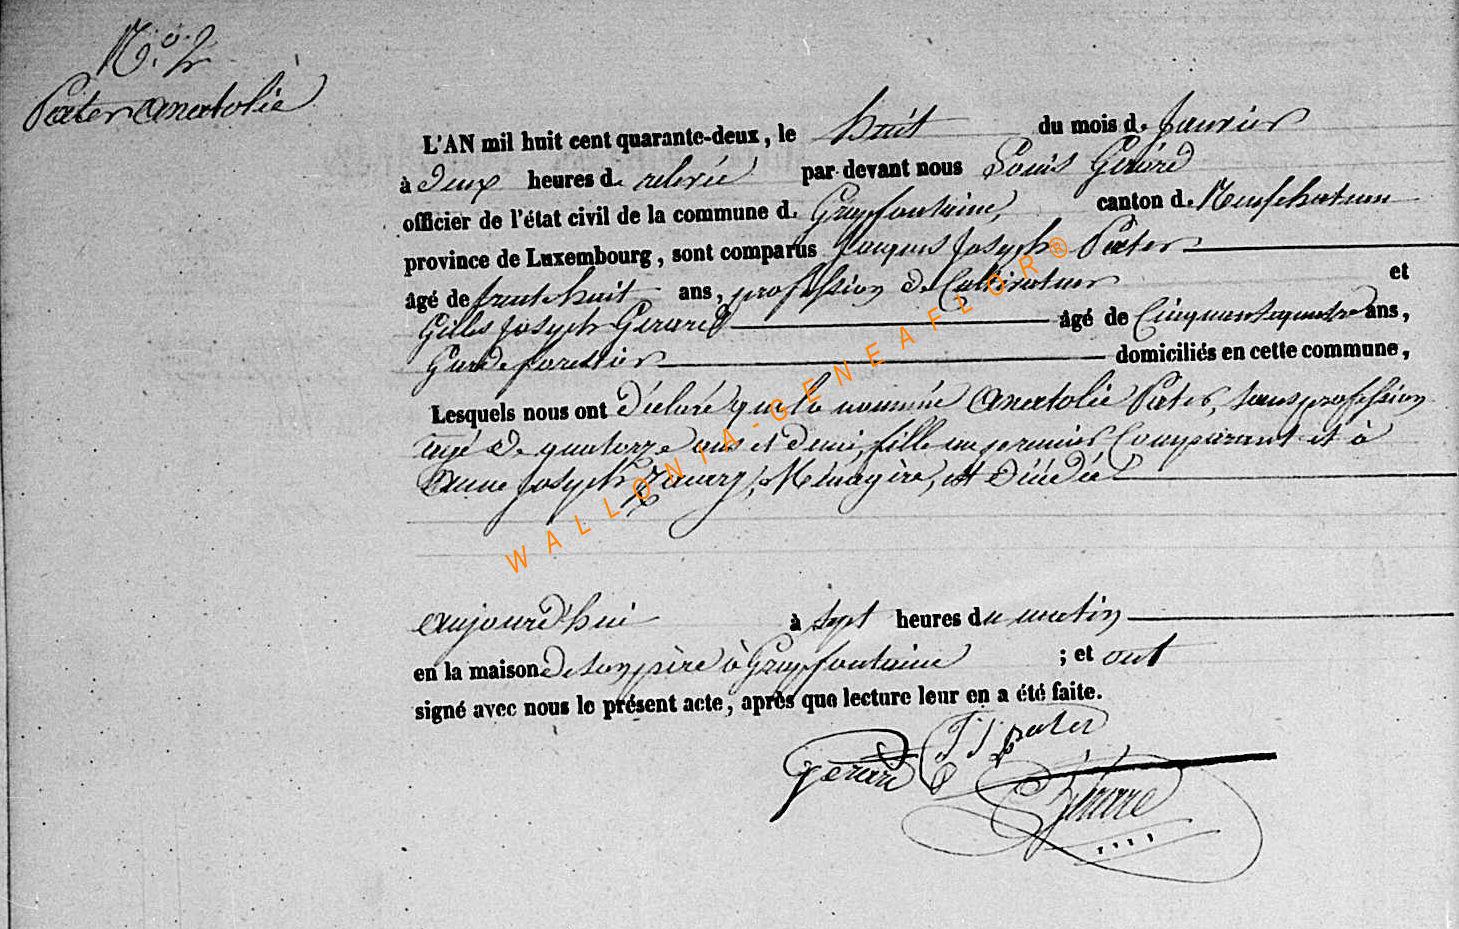 N.º 2
Pater Anatolie
L'AN mil huit cent quarante-deux, le huit du mois de Janvier
à deux heures de relevée par devant nous Louis Gérard
officier de l'état civil de la commune de Grapfontaine, canton de Neufchateau
province de Luxembourg, sont comparus Jacques Joseph Pater
âgé de trente huit ans, profession de Cultivateur et
Gilles Joseph Gerard âgé de Cinquante quatre ans,
Garde forestier domiciliés en cette commune,
Lesquels nous ont déclaré que la nommée Anatolie Pater, sans profession
agé de quatorze ans et demi, fille au premier Comparant et à
Anne Joseph Ménagère, est décédée
aujourd'hui à sept heures du matin
en la maison de son père à Grapfontaine ; et ont
signé avec nous le présent acte, après que lecture leur en a été faite.
J J pater
Gerard
Gérard
WALLONIA-GENEAFLOR®